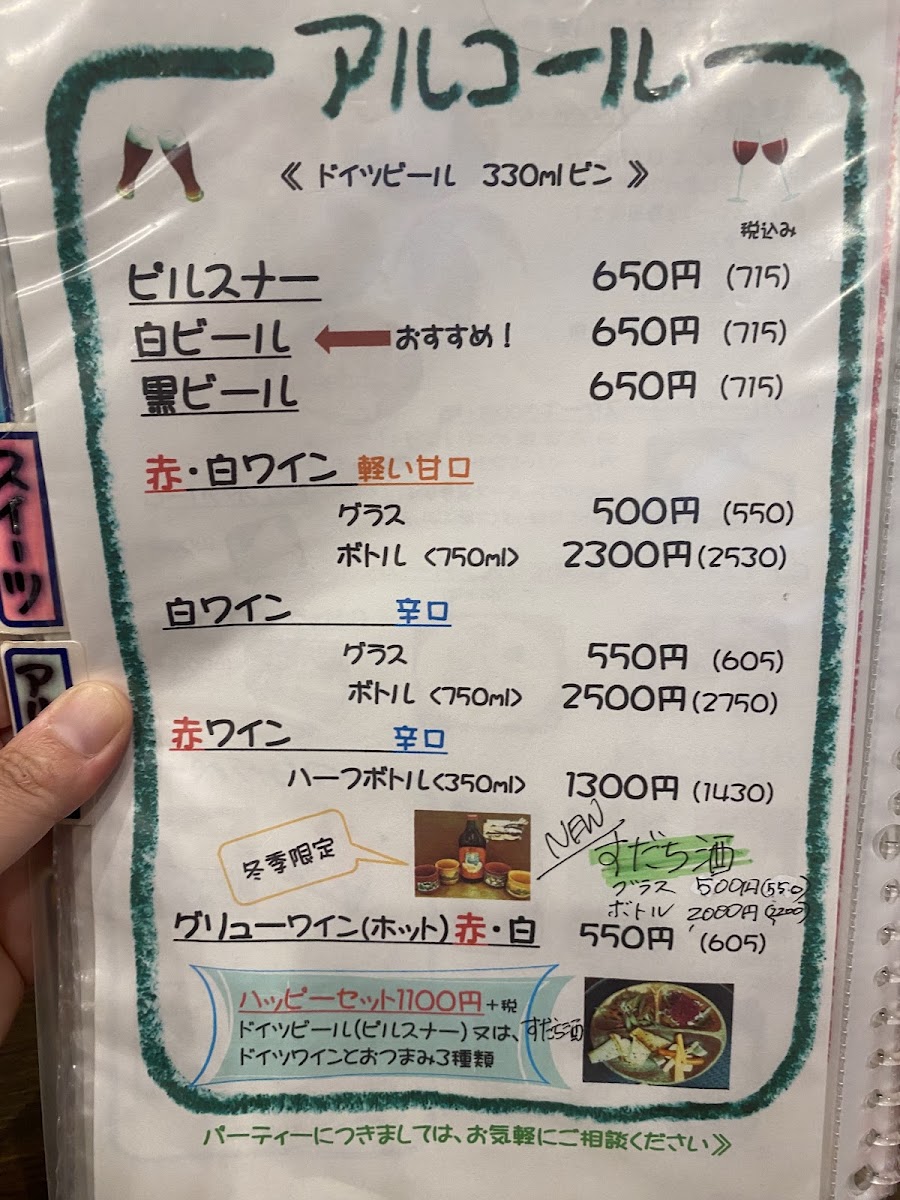 アルコール
《 ドイツビール 330mlビン 》
税込み
ピルスナー 650円 (715)
白ビール おすすめ! 650円 (715)
黒ビール 650円 (715)
赤・白ワイン 軽い甘口
グラス 500円 (550)
ボトル <750ml> 2300円 (2530)
白ワイン 辛口
グラス 550円 (605)
ボトル <750ml> 2500円 (2750)
赤ワイン 辛口
ハーフボトル<350ml> 1300円 (1430)
冬季限定
NEW すだち酒
グラス 500円(550)
ボトル 2000円(2200)
グリューワイン(ホット) 赤・白 550円 (605)
ハッピーセット1100円+税
ドイツビール(ピルスナー)又は、すだち酒
ドイツワインとおつまみ3種類
パーティーにつきましては、お気軽にご相談ください》
スイーツ
アル